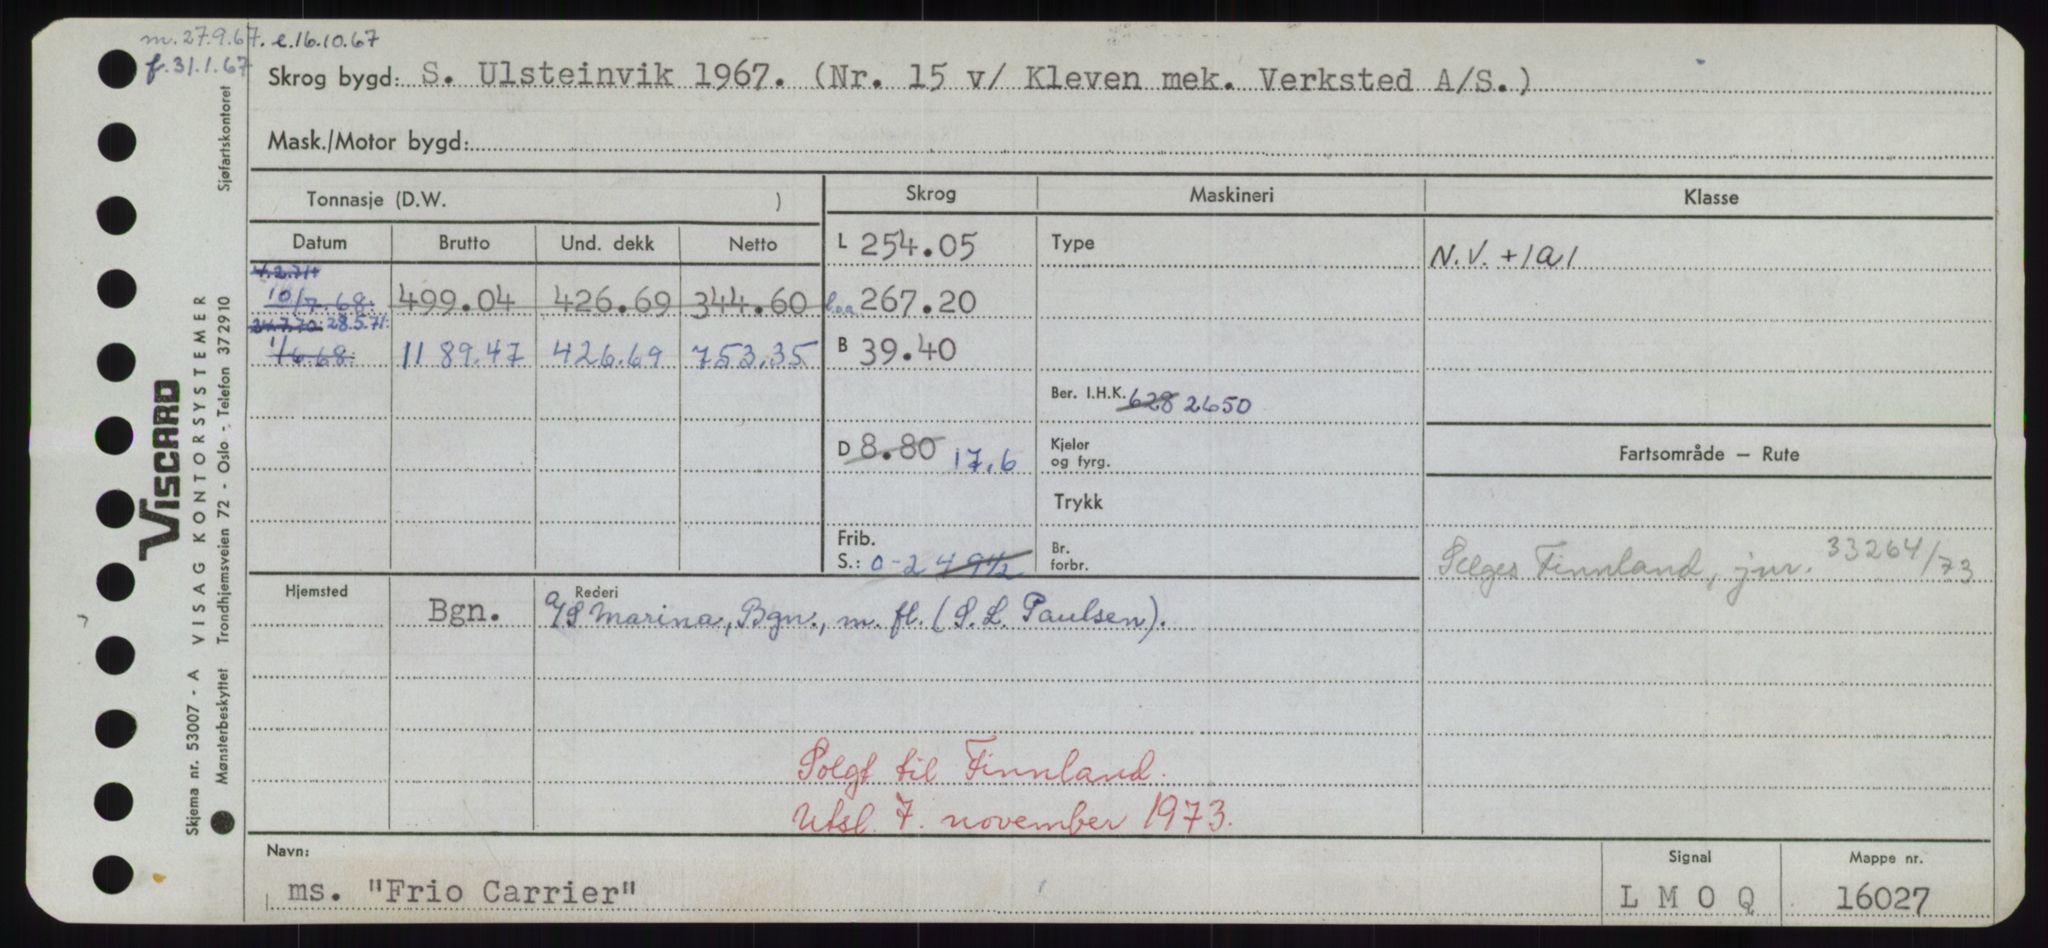 m. 27.9.67. e.16.10.67
f. 31.1.67
Skrog bygd: S. Ulsteinvik 1967. (Nr. 15 v/ Kleven mek. Verksted A/S.)
Mask./Motor bygd:
Tonnasje (D.W. )
Skrog Maskineri Klasse
Datum Brutto Und. dekk Netto
L 254.05 Type N.V. +1A1
10/7 68. 499.04 426.69 344.60 l.o.a. 267.20
28.5.71.
1/6.68. 1189.47 426.69 753.35 B 39.40
Ber. I.H.K. 628 2650
D 8.80 17.6
Kjeler og fyrg.
Fartsområde – Rute
Trykk
Frib. S.: 0-2 4 9½
Br. forbr.
Selges Finnland, jnr. 33264/73
Hjemsted Rederi
Bgn. A/S Marina, Bgn., m. fl. (S. L. Paulsen).
Solgt til Finnland.
Utsl. 7. november 1973.
Navn: Signal Mappe nr.
ms. "Frio Carrier" L M O Q 16027
Skjema nr. 53007 - A VISAG KONTORSYSTEMER
Mønsterbeskyttet Trondhjemsveien 72 - Oslo - Telefon 372910
Sjøfartskontoret
VISCARD